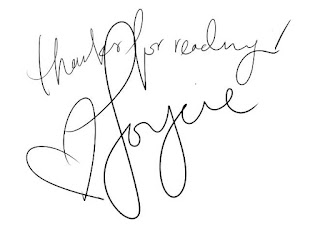 thanks for reading!
Joycie